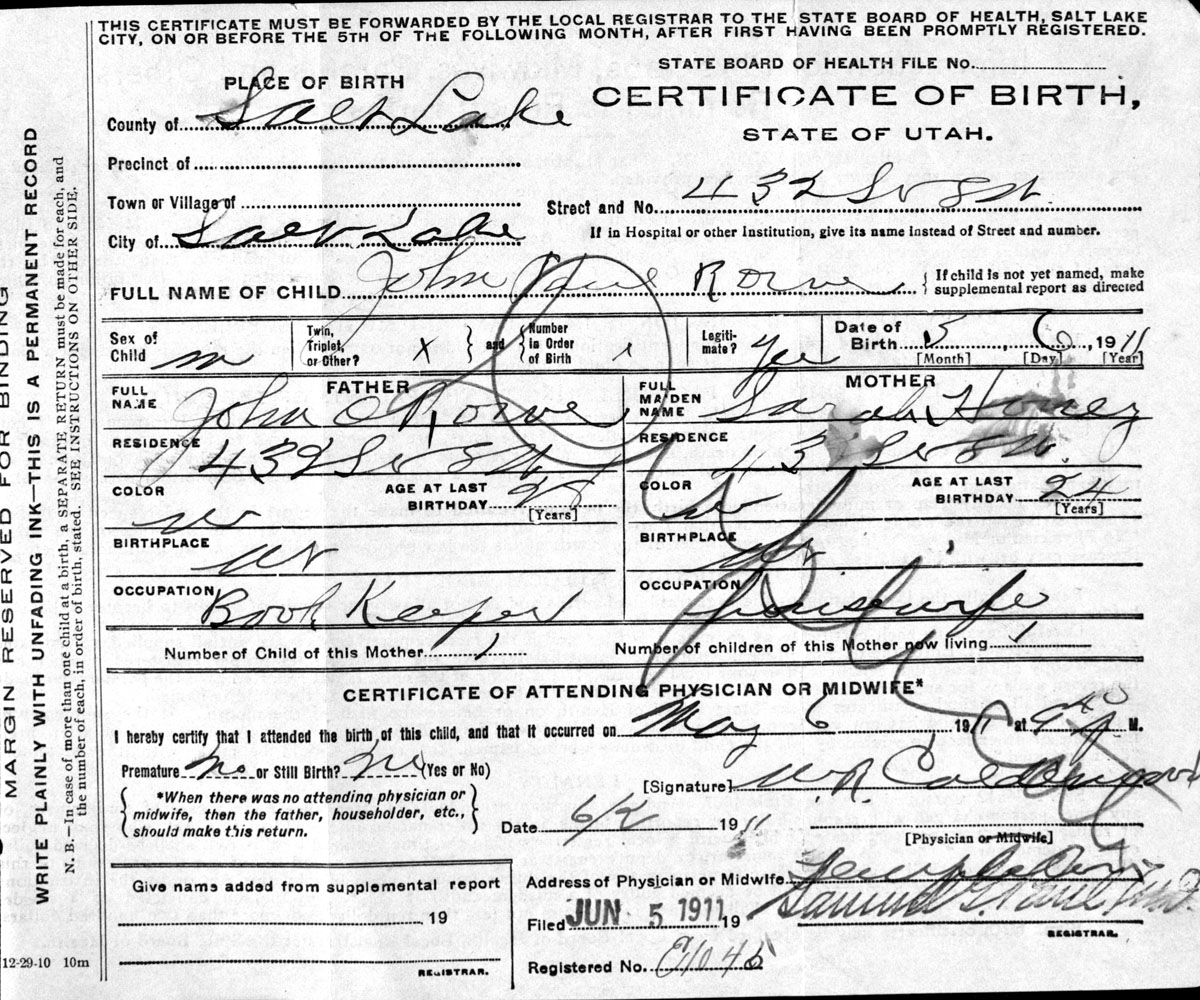 THIS CERTIFICATE MUST BE FORWARDED BY THE LOCAL REGISTRAR TO THE STATE BOARD OF HEALTH, SALT LAKE
CITY, ON OR BEFORE THE 5TH OF THE FOLLOWING MONTH, AFTER FIRST HAVING BEEN PROMPTLY REGISTERED.
STATE BOARD OF HEALTH FILE No.
PLACE OF BIRTH
CERTIFICATE OF BIRTH,
STATE OF UTAH.
County of Salt Lake
Precinct of
Town or Village of
Street and No. 432 So 8 W
City of Salt Lake
If in Hospital or other Institution, give its name instead of Street and number.
FULL NAME OF CHILD John Rowe
If child is not yet named, make
supplemental report as directed
Sex of Child m
Twin, Triplet, or Other? x
and
Number in Order of Birth x
Legitimate? Yes
Date of Birth 5 6 1911
[Month] [Day] [Year]
FATHER
MOTHER
FULL NAME John O Rowe
FULL MAIDEN NAME Sarah
RESIDENCE 432 So 8 W
RESIDENCE 43 So 8 W.
COLOR W
AGE AT LAST BIRTHDAY 28
[Years]
COLOR W
AGE AT LAST BIRTHDAY 24
(Years)
BIRTHPLACE Ut
BIRTHPLACE Ut
OCCUPATION Book Keeper
OCCUPATION Housewife
Number of Child of this Mother 1
Number of children of this Mother now living 1
CERTIFICATE OF ATTENDING PHYSICIAN OR MIDWIFE*
I hereby certify that I attended the birth of this child, and that it occurred on May 6 1911 at 9 M.
Premature No or Still Birth? No (Yes or No)
[Signature] W.R.
*When there was no attending physician or
midwife, then the father, householder, etc.,
should make this return.
Date 6/2 1911
[Physician or Midwife]
Address of Physician or Midwife
Give name added from supplemental report
19
REGISTRAR.
Filed JUN 5 1911 19 Samuel G. Paul
REGISTRAR.
Registered No.
12-29-10 10m
MARGIN RESERVED FOR BINDING
WRITE PLAINLY WITH UNFADING INK—THIS IS A PERMANENT RECORD
N. B.—In case of more than one child at a birth, a SEPARATE RETURN must be made for each, and
the number of each, in order of birth, stated. SEE INSTRUCTIONS ON OTHER SIDE.